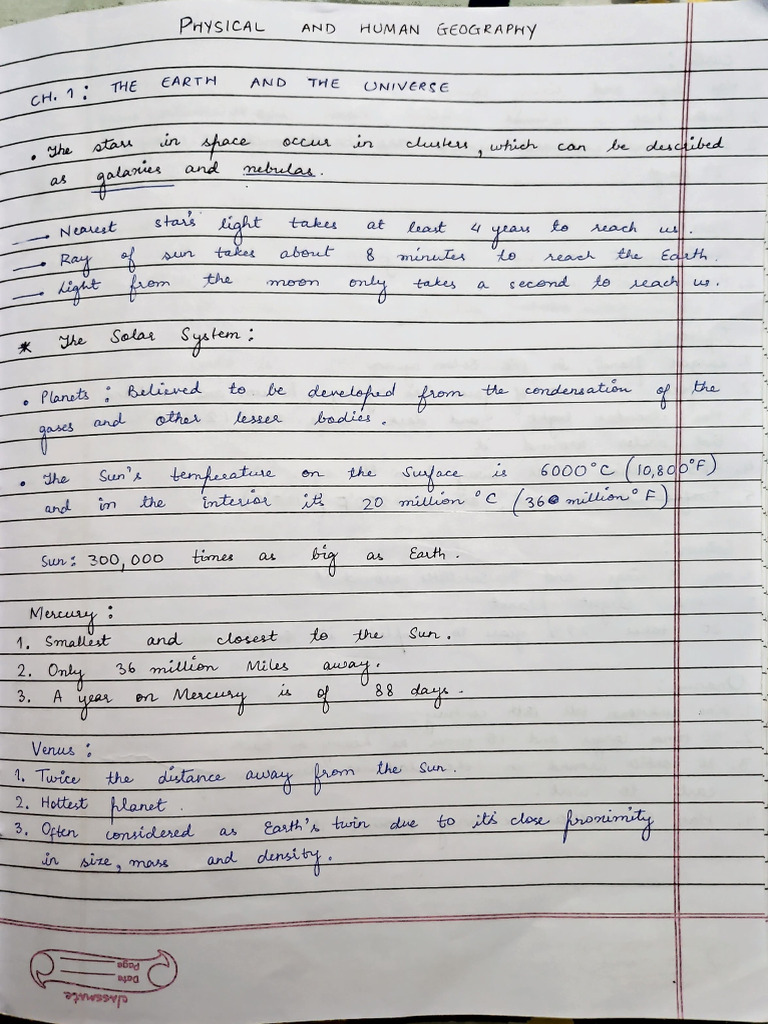 PHYSICAL AND HUMAN GEOGRAPHY
CH. 1: THE EARTH AND THE UNIVERSE
• The stars in space occur in clusters, which can be described
as galaxies and nebulas.
→ Nearest star's light takes at least 4 years to reach us.
→ Ray of sun takes about 8 minutes to reach the Earth.
→ Light from the moon only takes a second to reach us.
* The Solar System:
• Planets: Believed to be developed from the condensation of the
gases and other lesser bodies.
• The Sun's temperature on the surface is 6000°C (10,800°F)
and in the interior it's 20 million °C (360 million °F)
Sun: 300,000 times as big as Earth.
Mercury:
1. Smallest and closest to the Sun.
2. Only 36 million Miles away.
3. A year on Mercury is of 88 days.
Venus:
1. Twice the distance away from the Sun.
2. Hottest planet.
3. Often considered as Earth's twin due to it's close proximity
in size, mass and density.
Page
Date
classmate